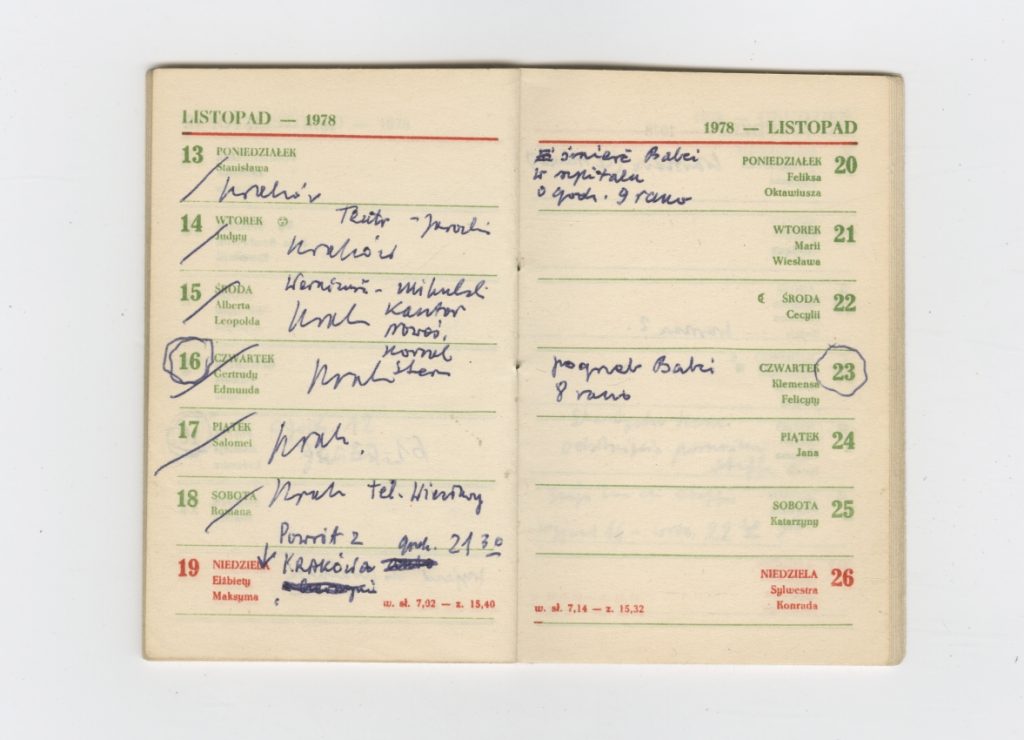 LISTOPAD — 1978
13 PONIEDZIAŁEK
Stanisława
Kraków
14 WTOREK
Judyty
Teatr - Jarocki
Kraków
15 ŚRODA
Alberta
Leopolda
Wernisaż - Mikulski
Krak Kantor
Nowos.
Kornel
Stern
16 CZWARTEK
Gertrudy
Edmunda
Krak
17 PIĄTEK
Salomei
Krak.
18 SOBOTA
Romana
Krak tel.
19 NIEDZIELA
Elżbiety
Maksyma
Powrót z
KRAKÓWA godz. 21 30
w. sł. 7,02 — z. 15,40
1978 — LISTOPAD
śmierć Babci
w szpitalu
o godz. 9 rano
PONIEDZIAŁEK 20
Feliksa
Oktawiusza
WTOREK 21
Marii
Wiesława
ŚRODA 22
Cecylii
pogrzeb Babci
8 rano
CZWARTEK 23
Klemensa
Felicyty
PIĄTEK 24
Jana
SOBOTA 25
Katarzyny
NIEDZIELA 26
Sylwestra
Konrada
w. sł. 7,14 — z. 15,32